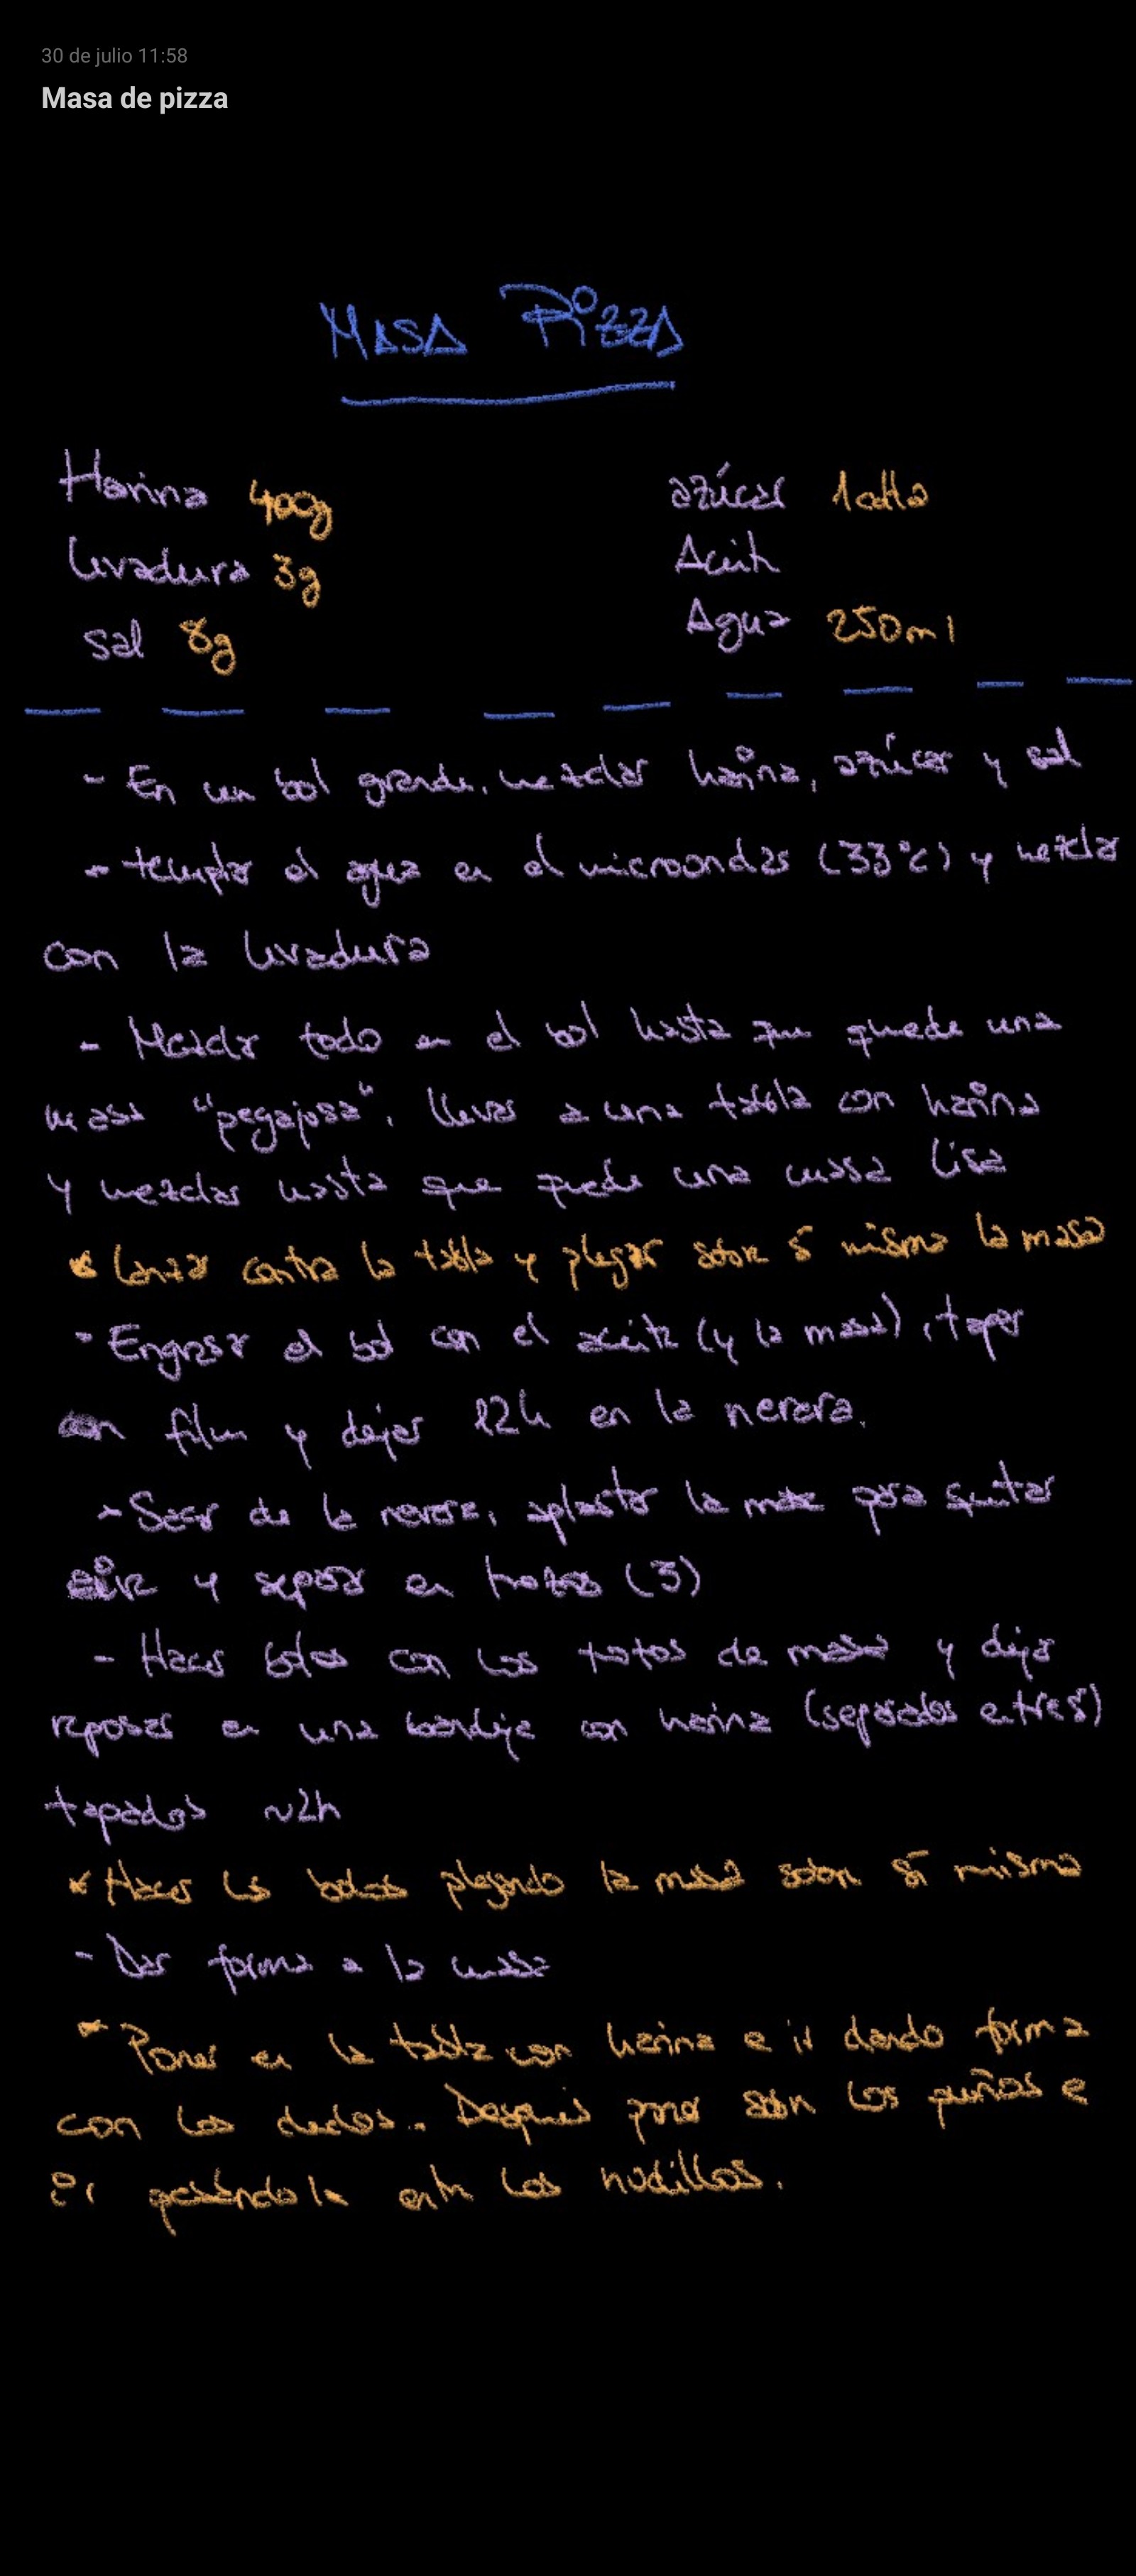 30 de julio 11:58
Masa de pizza
MASA PIZZA
Harina 400g azúcar 1cdta
levadura 3g Aceite
sal 8g Agua 250ml
- En un bol grande, mezclar harina, azúcar y sal
- templar el agua en el microondas (33°C) y mezclar
con la levadura
- Mezclar todo en el bol hasta que quede una
masa "pegajosa", llevar a una tabla con harina
y mezclar hasta que quede una masa lisa
* lanzar contra la tabla y plegar sobre sí misma la masa
- Engrasar el bol con el aceite (y la masa), tapar
con film y dejar 12h en la nevera.
- Sacar de la nevera, aplastar la masa para quitar
aire y separar en trozos (3)
- Hacer bolas con los trozos de masa y dejar
reposar en una bandeja con harina (separados entre sí)
tapados ~2h
* Hacer las bolas plegando la masa sobre sí misma
- Dar forma a la masa
* Poner en la tabla con harina e ir dando forma
con los dedos. Después poner sobre los puños e
ir pasándola entre los nudillos.